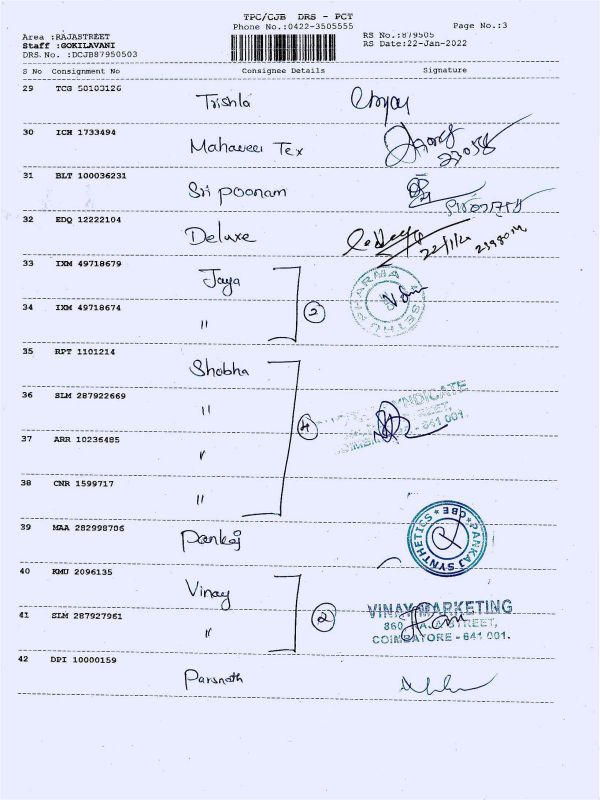 TPC/CJB DRS - PCT
Phone No.:0422-3505555
Page No.:3
Area :RAJASTREET
Staff :GOKILAVANI
DRS.No. :DCJB87950503
RS No.:879505
RS Date:22-Jan-2022
S No Consignment No Consignee Details Signature
29 TCG 50103126 Trishla
30 ICH 1733494 Mahaveer Tex
31 BLT 100036231 Sri Poonam
32 EDQ 12222104 Deluxe
22/1/2
33 IXM 49718679 Jaya
34 IXM 49718674 " 2
PHARMA SETHU
35 RPT 1101214 Shobha
36 SLM 287922669 "
SYNDICATE
STREET,
641 001.
4
37 ARR 10236485 "
38 CNR 1599717 "
39 MAA 282998706 Pankaj
PANKAJ SYNTHETICS * CBE *
40 KMU 2096135 Vinay
41 SLM 287927961 " 2
VINAY MARKETING
860, RAJA STREET,
COIMBATORE - 641 001.
42 DPI 10000159 Parsnath